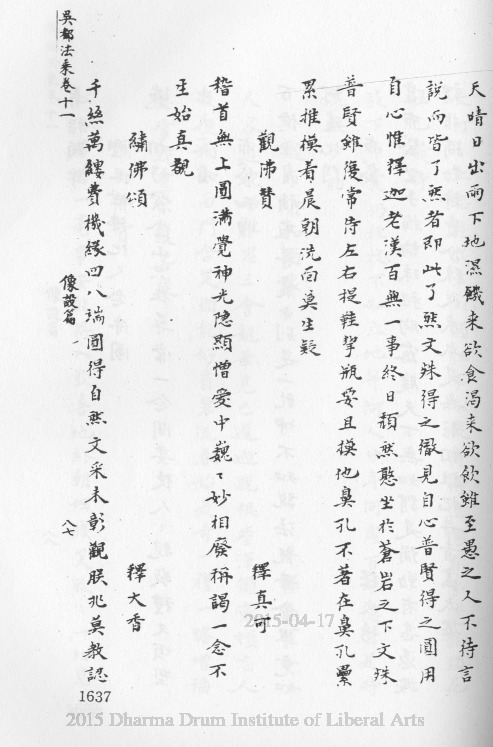 吳都法乘卷十一
天晴日出雨下地濕饑来欲食渴来欲飲雖至愚之人不待言
說而皆了然者即此了然文殊得之徹見自心普賢得之圓用
自心惟釋迦老漢百無一事終日頹然憨坐於蒼岩之下文殊
普賢雖復常侍左右提鞋挈瓶妥且摸他鼻孔不著在鼻孔纍
累推模着晨朝洗面莫生疑
觀沸贊
釋真可
稽首無上圓滿覺神光隐顯憎愛中巍巍妙相廢稱謁一念不
至始真覲
繡佛頌
釋大香
千絲萬縷費機緣四八端圓得自然文采未彰觀朕兆莫教認
像設篇
一
八七
1637
2015-04-17
2015 Dharma Drum Institute of Liberal Arts